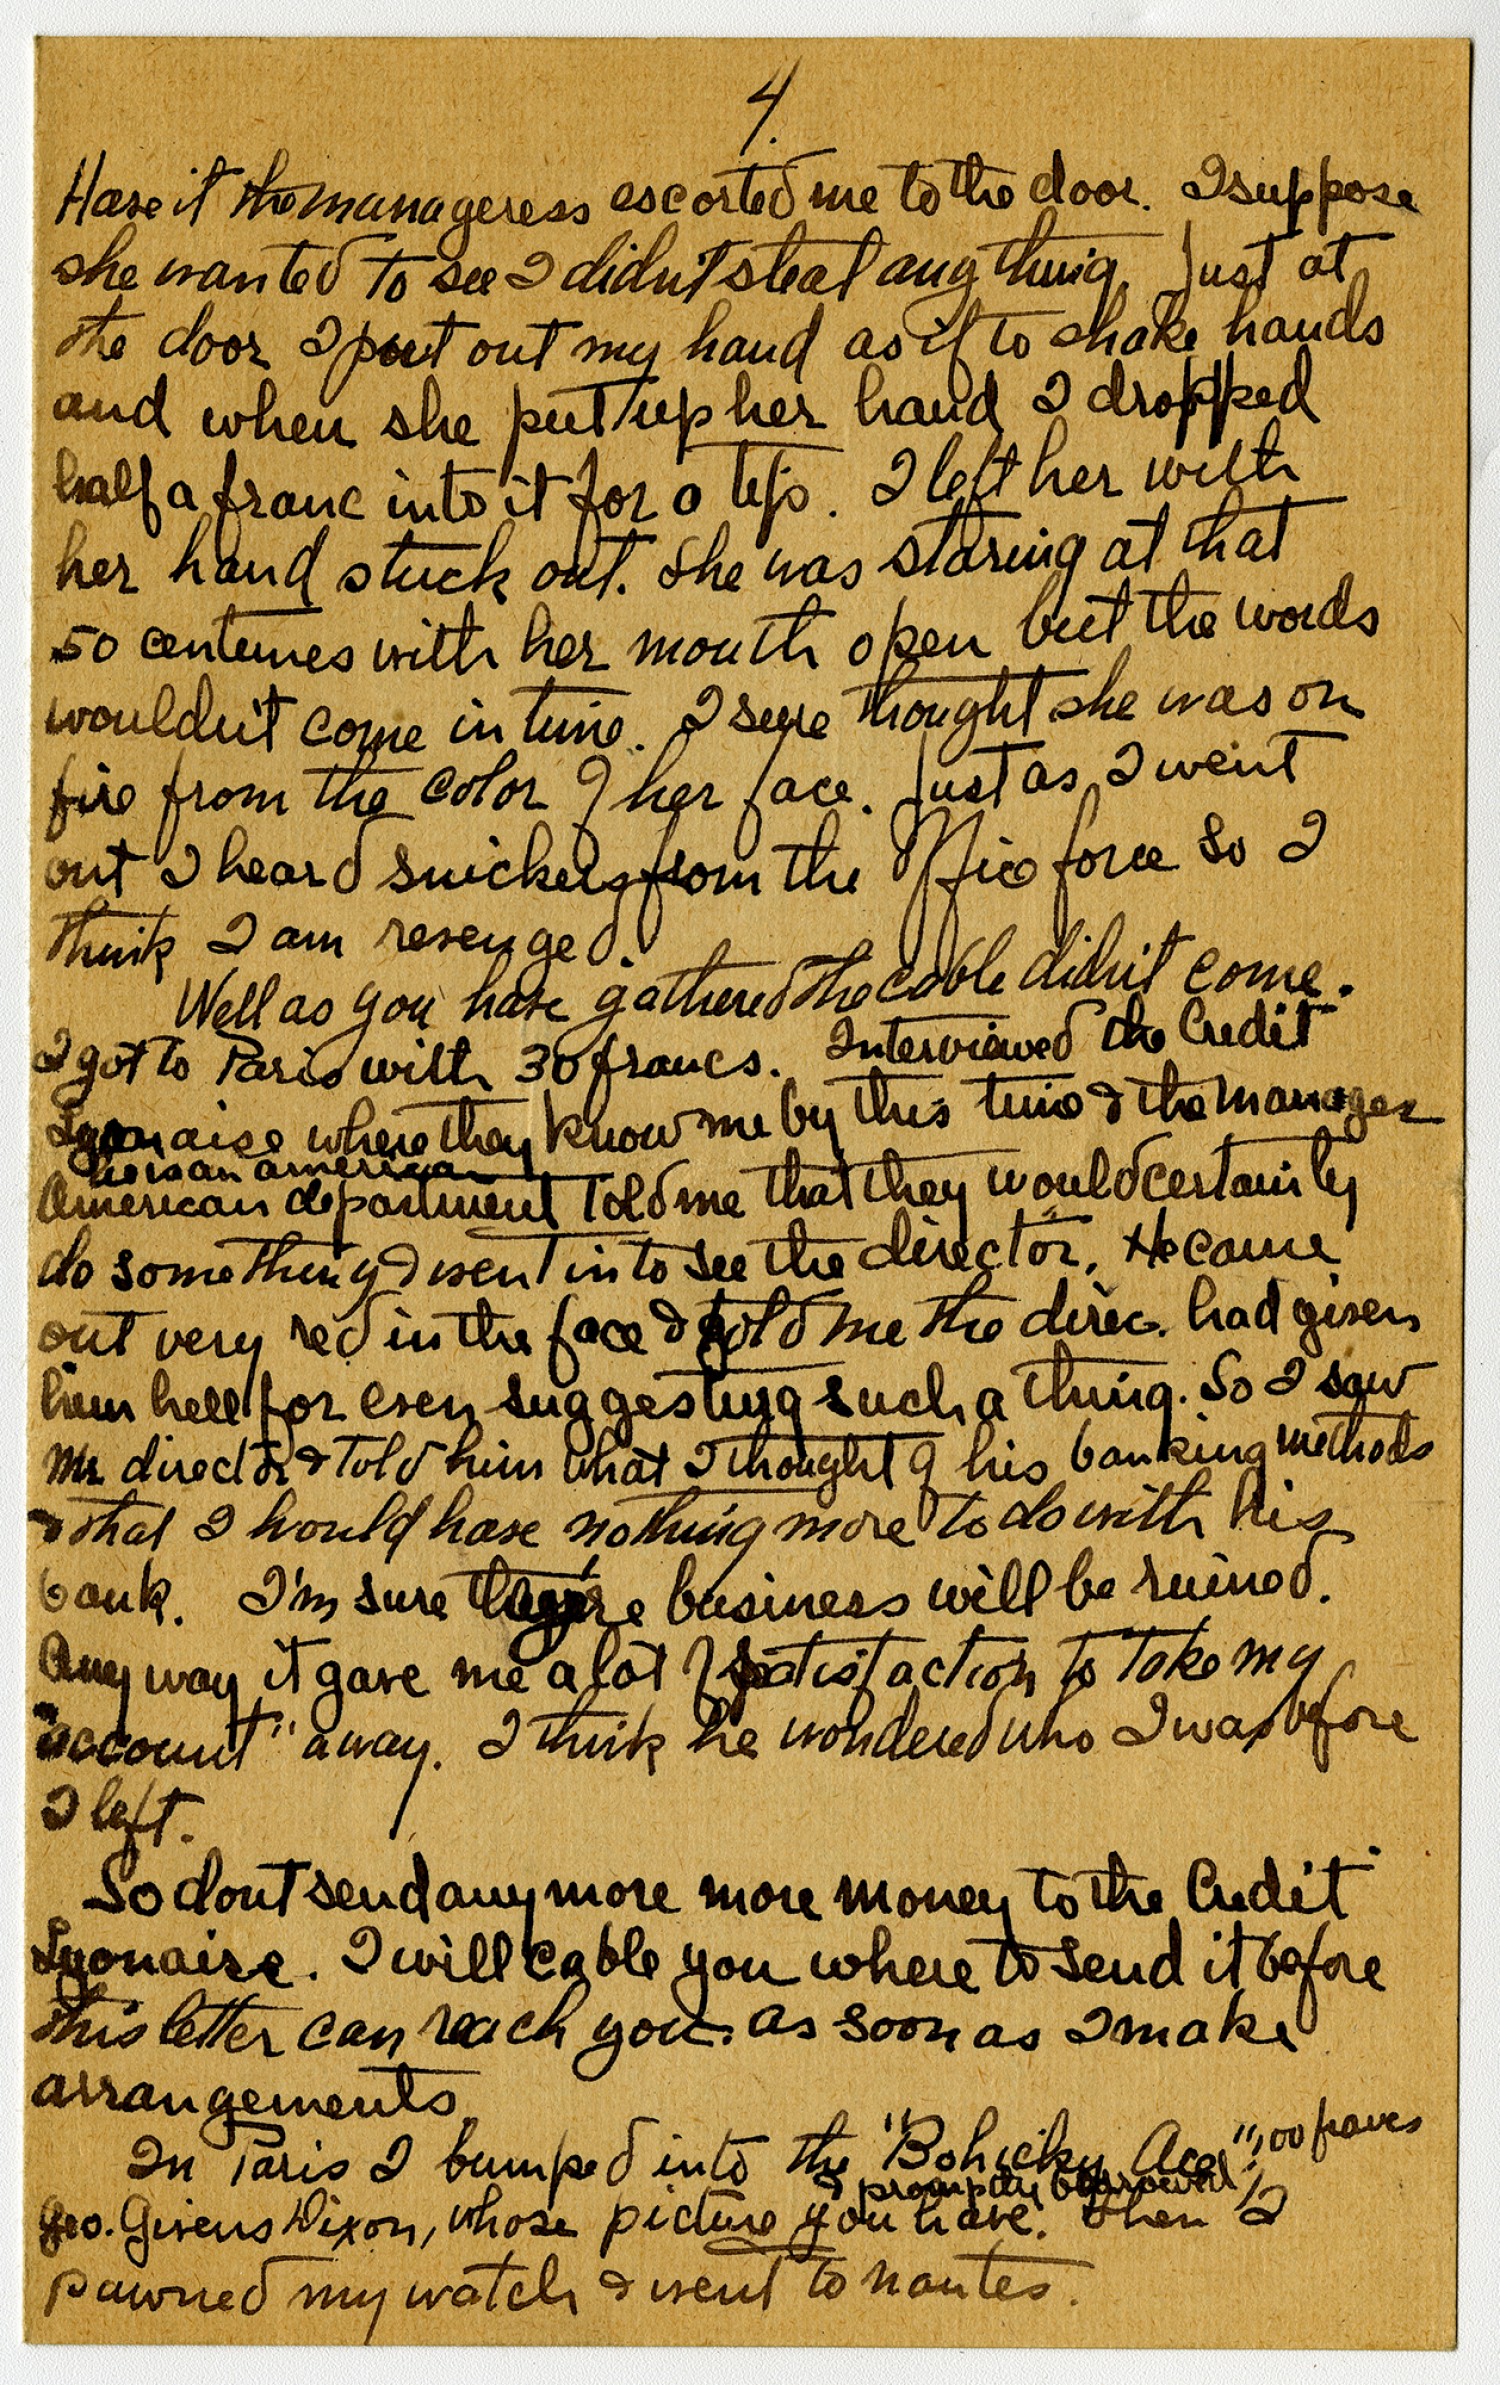 4.
Have it the manageress escorted me to the door. I suppose
she wanted to see I didn't steal any thing. Just at
the door I put out my hand as if to shake hands
and when she put up her hand I dropped
half a franc into it for a tip. I left her with
her hand stuck out. She was staring at that
50 centimes with her mouth open but the words
wouldn't come in time. I sure thought she was on
fire from the color of her face. Just as I went
out I heard snickers from the office force so I
think I am revenged.
Well as you have gathered the cable didn't come.
I got to Paris with 30 francs. Interviewed the Credit
Lyonaise where they know me by this time & the manager
he is an american
American department told me that they would certainly
do something & went in to see the director. He came
out very red in the face & told me the direc. had given
him hell for even suggesting such a thing. So I saw
Mr director & told him what I thought of his banking methods
& that I would have nothing more to do with his
bank. I'm sure there business will be ruined.
Any way it gave me a lot of satisfaction to take my
"account" away. I think he wondered who I was before
I left.
So dont send any more more money to the Credit
Lyonaise. I will cable you where to send it before
this letter can reach you. as soon as I make
arrangements.
In Paris I bumped into the "Bohicky Ace",
& promptly borrowed 100 francs
Geo. Givens Dixon, whose picture you have. Then I
pawned my watch & went to nantes.